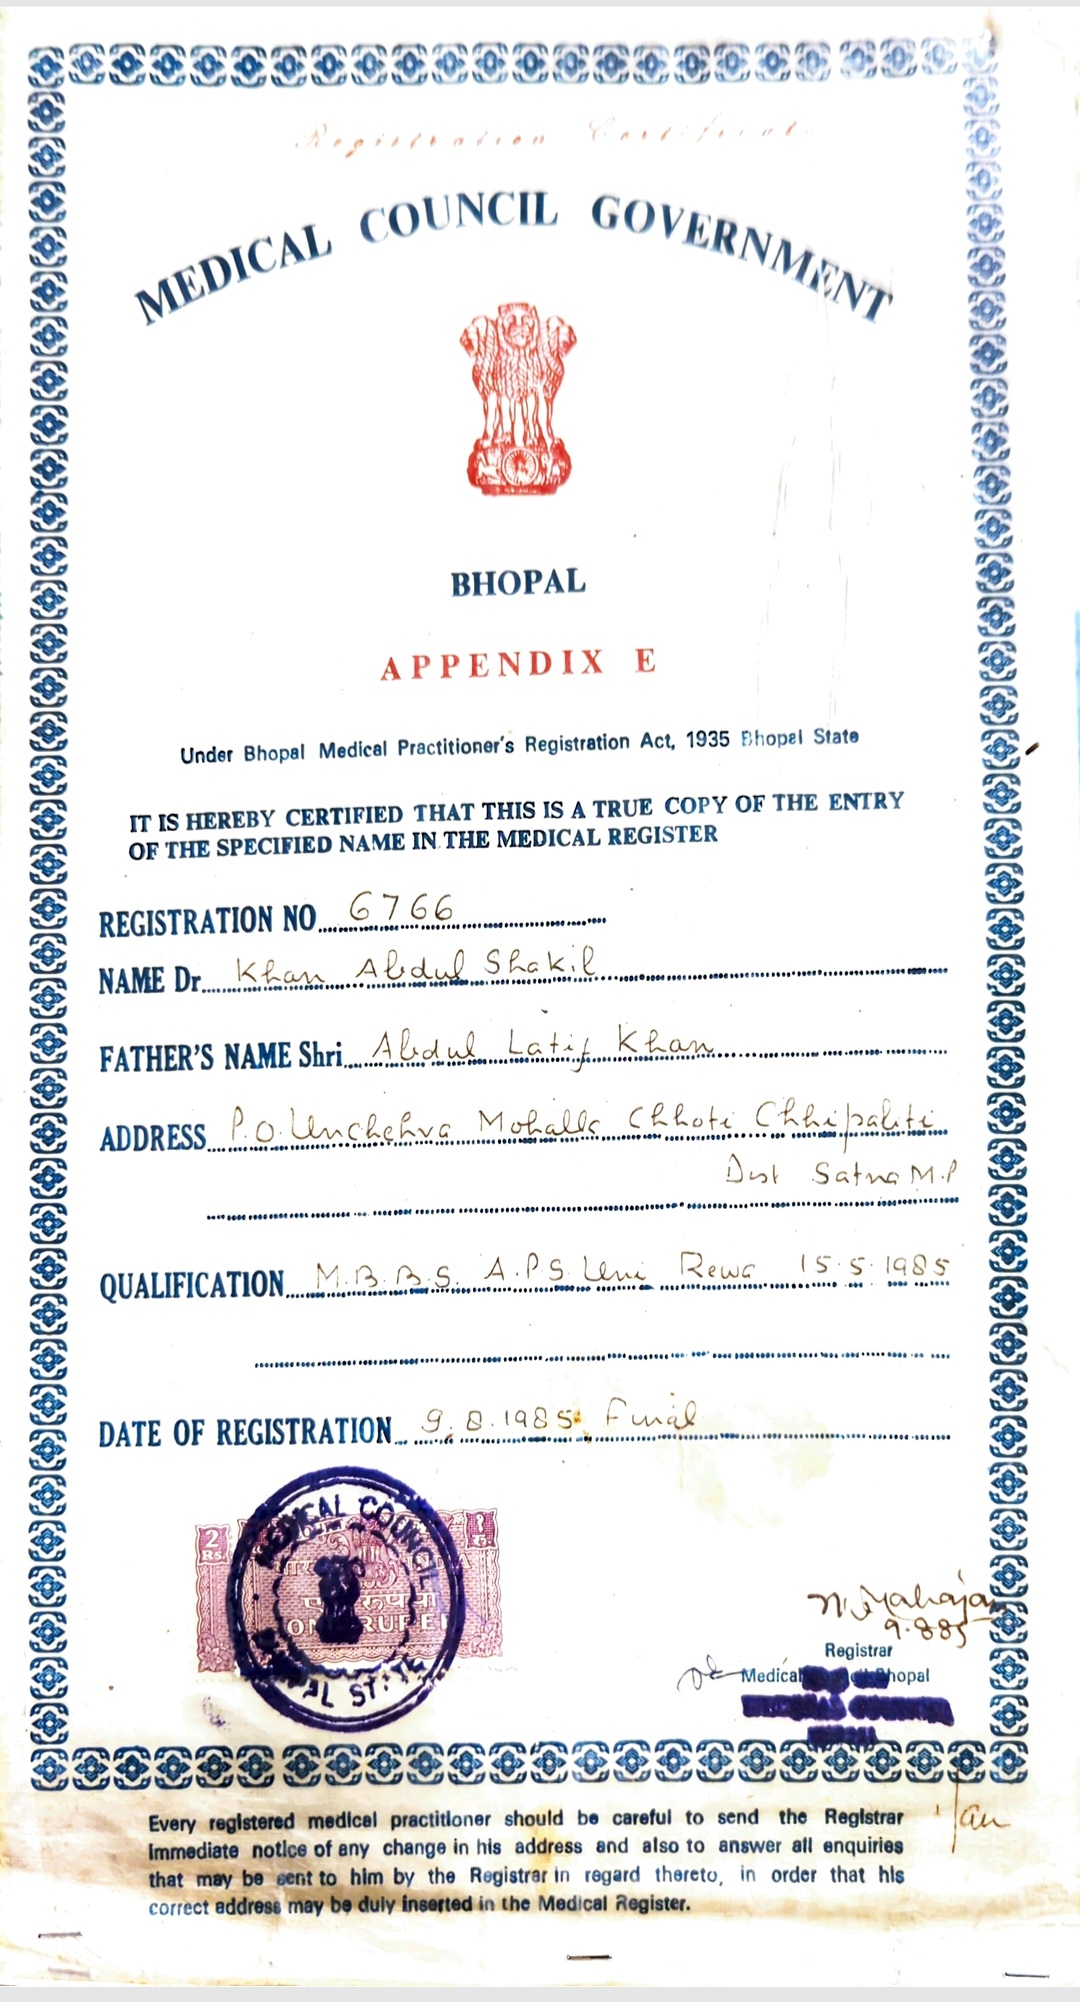 Registration Certificate
MEDICAL COUNCIL GOVERNMENT
BHOPAL
APPENDIX E
Under Bhopal Medical Practitioner's Registration Act, 1935 Bhopal State
IT IS HEREBY CERTIFIED THAT THIS IS A TRUE COPY OF THE ENTRY
OF THE SPECIFIED NAME IN THE MEDICAL REGISTER
REGISTRATION NO 6766
NAME Dr. Khan Abdul Shakil
FATHER'S NAME Shri Abdul Latif Khan
ADDRESS P.O. Unchehra Mohalla Chhoti Chhipaliti
Dist Satna M.P
QUALIFICATION M.B.B.S. A.P.S. Uni Rewa 15.5.1985
DATE OF REGISTRATION 9.8.1985 Final
MEDICAL COUNCIL
2 Rs.
ONE RUPEE
एक रुपया
BHOPAL STATE
N. Mahajan
9.8.85
Registrar
Medical Council Bhopal
Every registered medical practitioner should be careful to send the Registrar
immediate notice of any change in his address and also to answer all enquiries
that may be sent to him by the Registrar in regard thereto, in order that his
correct address may be duly inserted in the Medical Register.